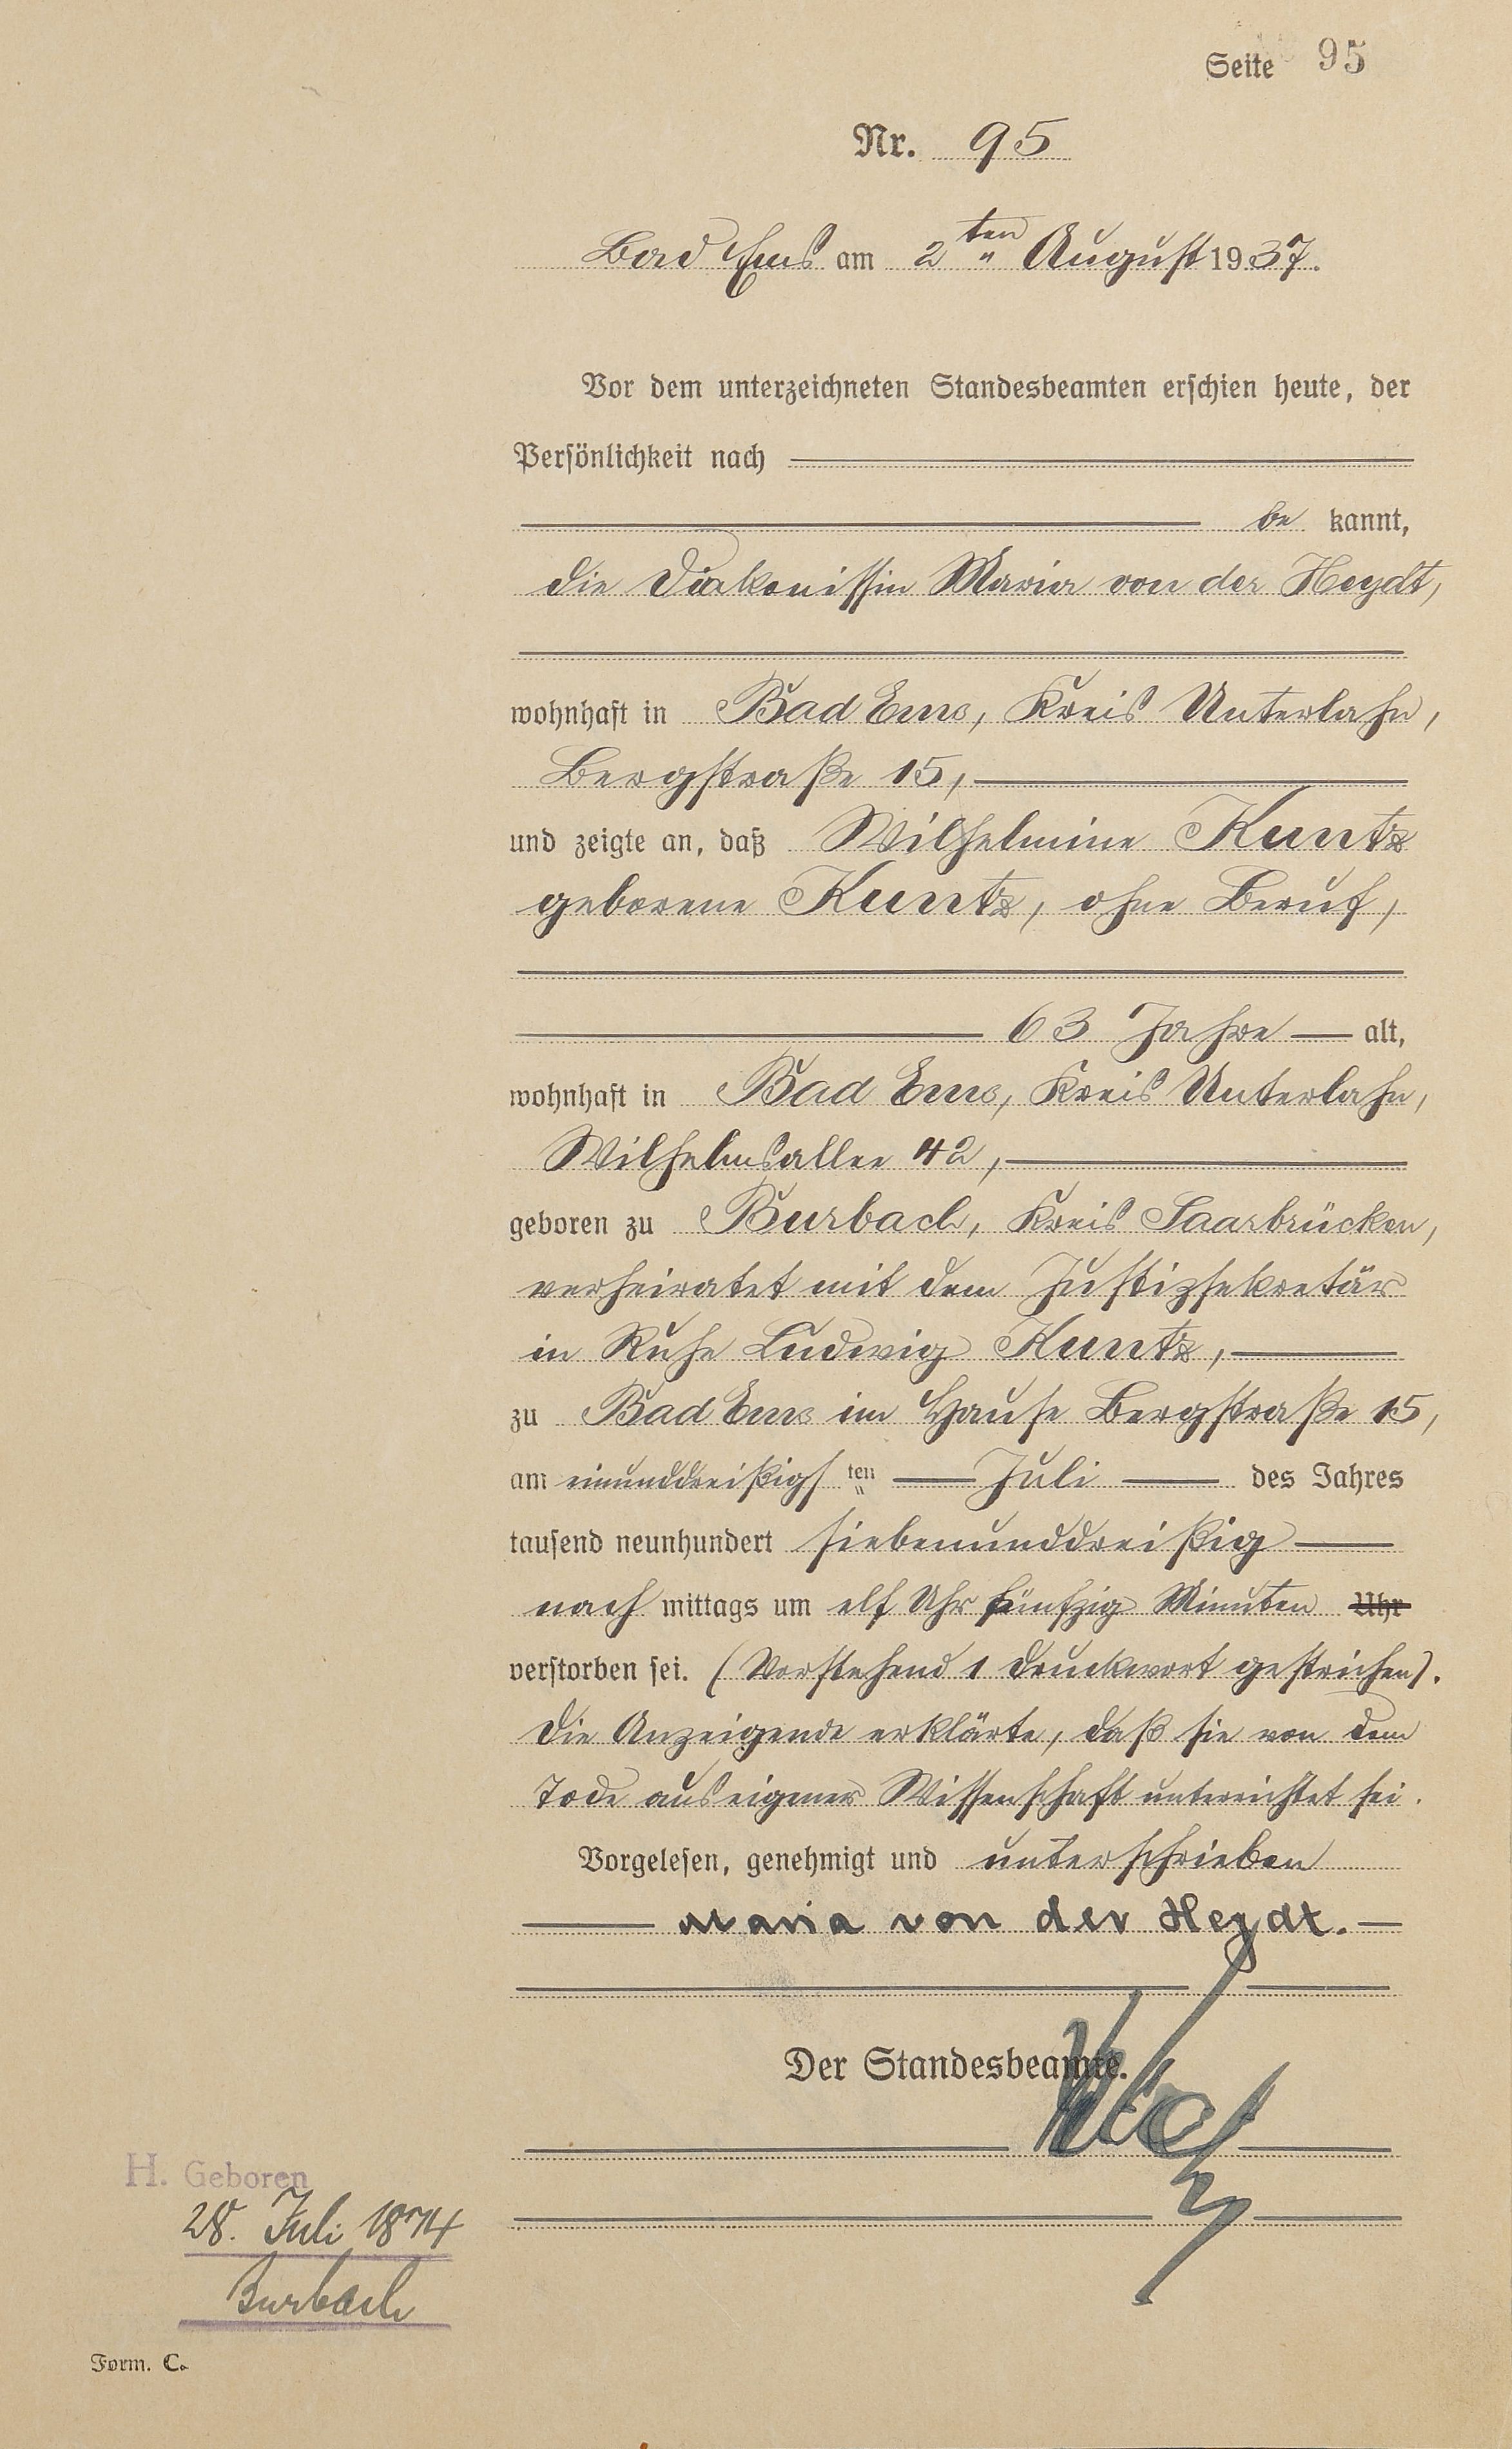 Seite 95
Nr. 95
Bad Ems am 2ten August 1937.
Vor dem unterzeichneten Standesbeamten erschien heute, der
Persönlichkeit nach
be kannt,
die Diakonissin Maria von der Heydt,
wohnhaft in Bad Ems, Kreis Unterlahn,
Bergstraße 15,
und zeigte an, daß Wilhelmine Kuntz
geborene Kuntz, ohne Beruf,
63 Jahre alt,
wohnhaft in Bad Ems, Kreis Unterlahn,
Wilhelmsallee 42,
geboren zu Burbach, Kreis Saarbrücken,
verheiratet mit dem Justizsekretär
in Ruhe Ludwig Kuntz,
zu Bad Ems im Hause Bergstraße 15,
am einunddreißigsten Juli des Jahres
tausend neunhundert siebenunddreißig
nach mittags um elf Uhr fünfzig Minuten Uhr
verstorben sei. (Vorstehend 1 Druckwort gestrichen).
Die Anzeigende erklärte, daß sie von dem
Tode aus eigener Wissenschaft unterrichtet sei.
Vorgelesen, genehmigt und unterschrieben
Maria von der Heydt.
Der Standesbeamte.
H. Geboren
28. Juli 1874
Burbach
Form. C.